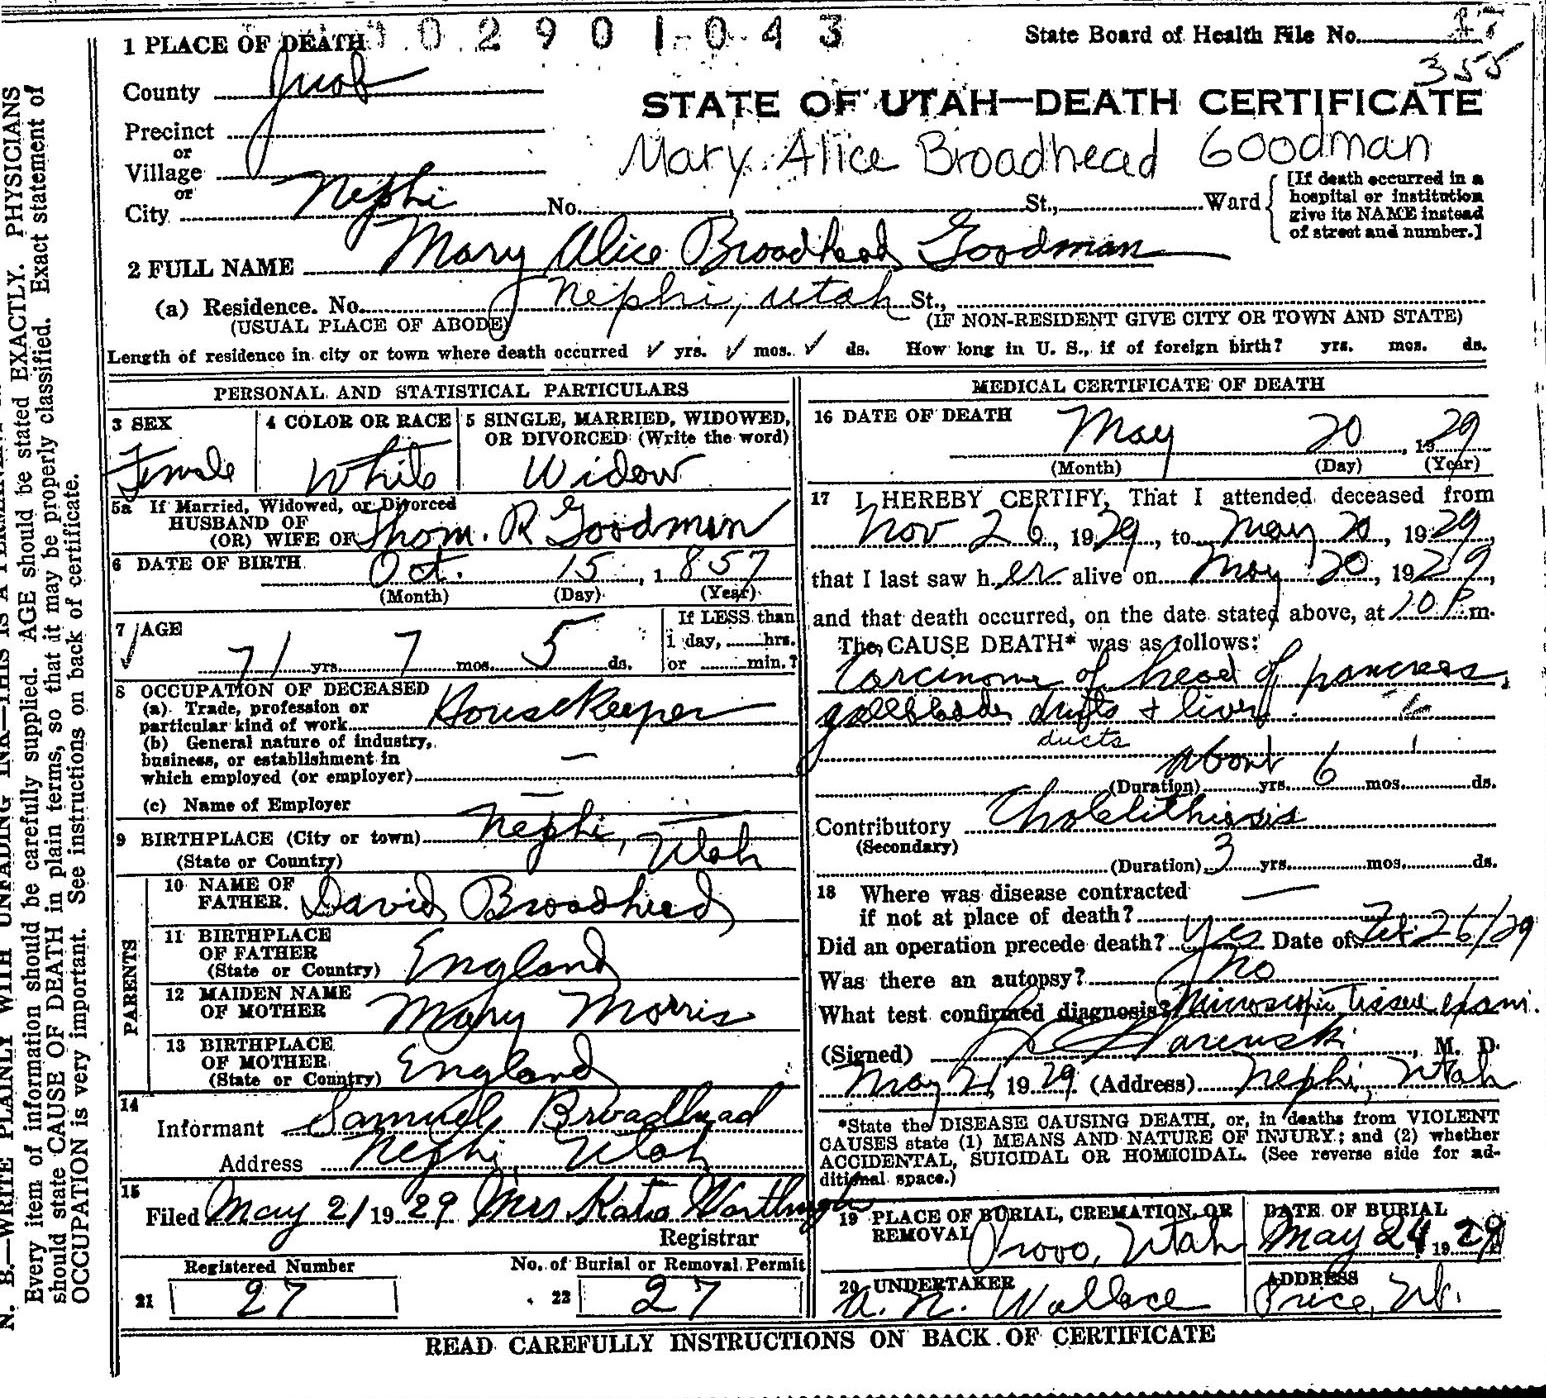 1 PLACE OF DEATH 0 0 2 9 0 1 0 4 3
State Board of Health File No. 17
355
County Juab
STATE OF UTAH—DEATH CERTIFICATE
Precinct
or
Village
Mary Alice Broadhead Goodman
or
City Nephi No. St., Ward
[If death occurred in a
hospital or institution
give its NAME instead
of street and number.]
2 FULL NAME Mary Alice Broadhead Goodman
(a) Residence. No. Nephi, Utah St.,
(USUAL PLACE OF ABODE) (IF NON-RESIDENT GIVE CITY OR TOWN AND STATE)
Length of residence in city or town where death occurred ✓ yrs. ✓ mos. ✓ ds. How long in U. S., if of foreign birth? yrs. mos. ds.
PERSONAL AND STATISTICAL PARTICULARS
3 SEX
Female
4 COLOR OR RACE
White
5 SINGLE, MARRIED, WIDOWED,
OR DIVORCED (Write the word)
Widow
5a If Married, Widowed, or Divorced
HUSBAND OF
(OR) WIFE OF Thom. R Goodman
6 DATE OF BIRTH Oct. 15, 1857
(Month) (Day) (Year)
7 AGE
71 yrs. 7 mos. 5 ds.
If LESS than
1 day, hrs.
or min.?
8 OCCUPATION OF DECEASED
(a) Trade, profession or
particular kind of work Housekeeper
(b) General nature of industry,
business, or establishment in
which employed (or employer) —
(c) Name of Employer —
9 BIRTHPLACE (City or town) Nephi,
(State or Country) Utah
PARENTS
10 NAME OF
FATHER. David Broadhead
11 BIRTHPLACE
OF FATHER
(State or Country) England
12 MAIDEN NAME
OF MOTHER Mary Morris
13 BIRTHPLACE
OF MOTHER
(State or Country) England
14
Informant Samuel Broadhead
Address Nephi, Utah
15
Filed May 21 1929 Mrs Kate
Registrar
Registered Number
21 27
No. of Burial or Removal Permit
22 27
MEDICAL CERTIFICATE OF DEATH
16 DATE OF DEATH
May 20, 1929
(Month) (Day) (Year)
17 I HEREBY CERTIFY, That I attended deceased from
Nov 26, 1929, to May 20, 1929,
that I last saw her alive on May 20, 1929,
and that death occurred, on the date stated above, at 10 P m.
The CAUSE DEATH* was as follows:
Carcinoma of head of pancreas,
gallbladder ducts & liver.
ducts
about
(Duration) yrs. 6 mos. ds.
Contributory Cholelithiasis
(Secondary)
(Duration) 3 yrs. mos. ds.
18 Where was disease contracted
if not at place of death? —
Did an operation precede death? Yes Date of Feb. 26/29
Was there an autopsy? No
What test confirmed diagnosis? Microscopic tissue exam.
(Signed) M. D.
May 21, 1929 (Address) Nephi, Utah
*State the DISEASE CAUSING DEATH, or, in deaths from VIOLENT
CAUSES state (1) MEANS AND NATURE OF INJURY; and (2) whether
ACCIDENTAL, SUICIDAL OR HOMICIDAL. (See reverse side for ad-
ditional space.)
19 PLACE OF BURIAL, CREMATION, OR
REMOVAL Provo, Utah
DATE OF BURIAL
May 24 1929
20 UNDERTAKER
A. N. Wallace
ADDRESS
Price, Ut.
READ CAREFULLY INSTRUCTIONS ON BACK OF CERTIFICATE
N. B.—WRITE PLAINLY WITH UNFADING INK—THIS IS A PERMANENT
Every item of information should be carefully supplied. AGE should be stated EXACTLY. PHYSICIANS
should state CAUSE OF DEATH in plain terms, so that it may be properly classified. Exact statement of
OCCUPATION is very important. See instructions on back of certificate.